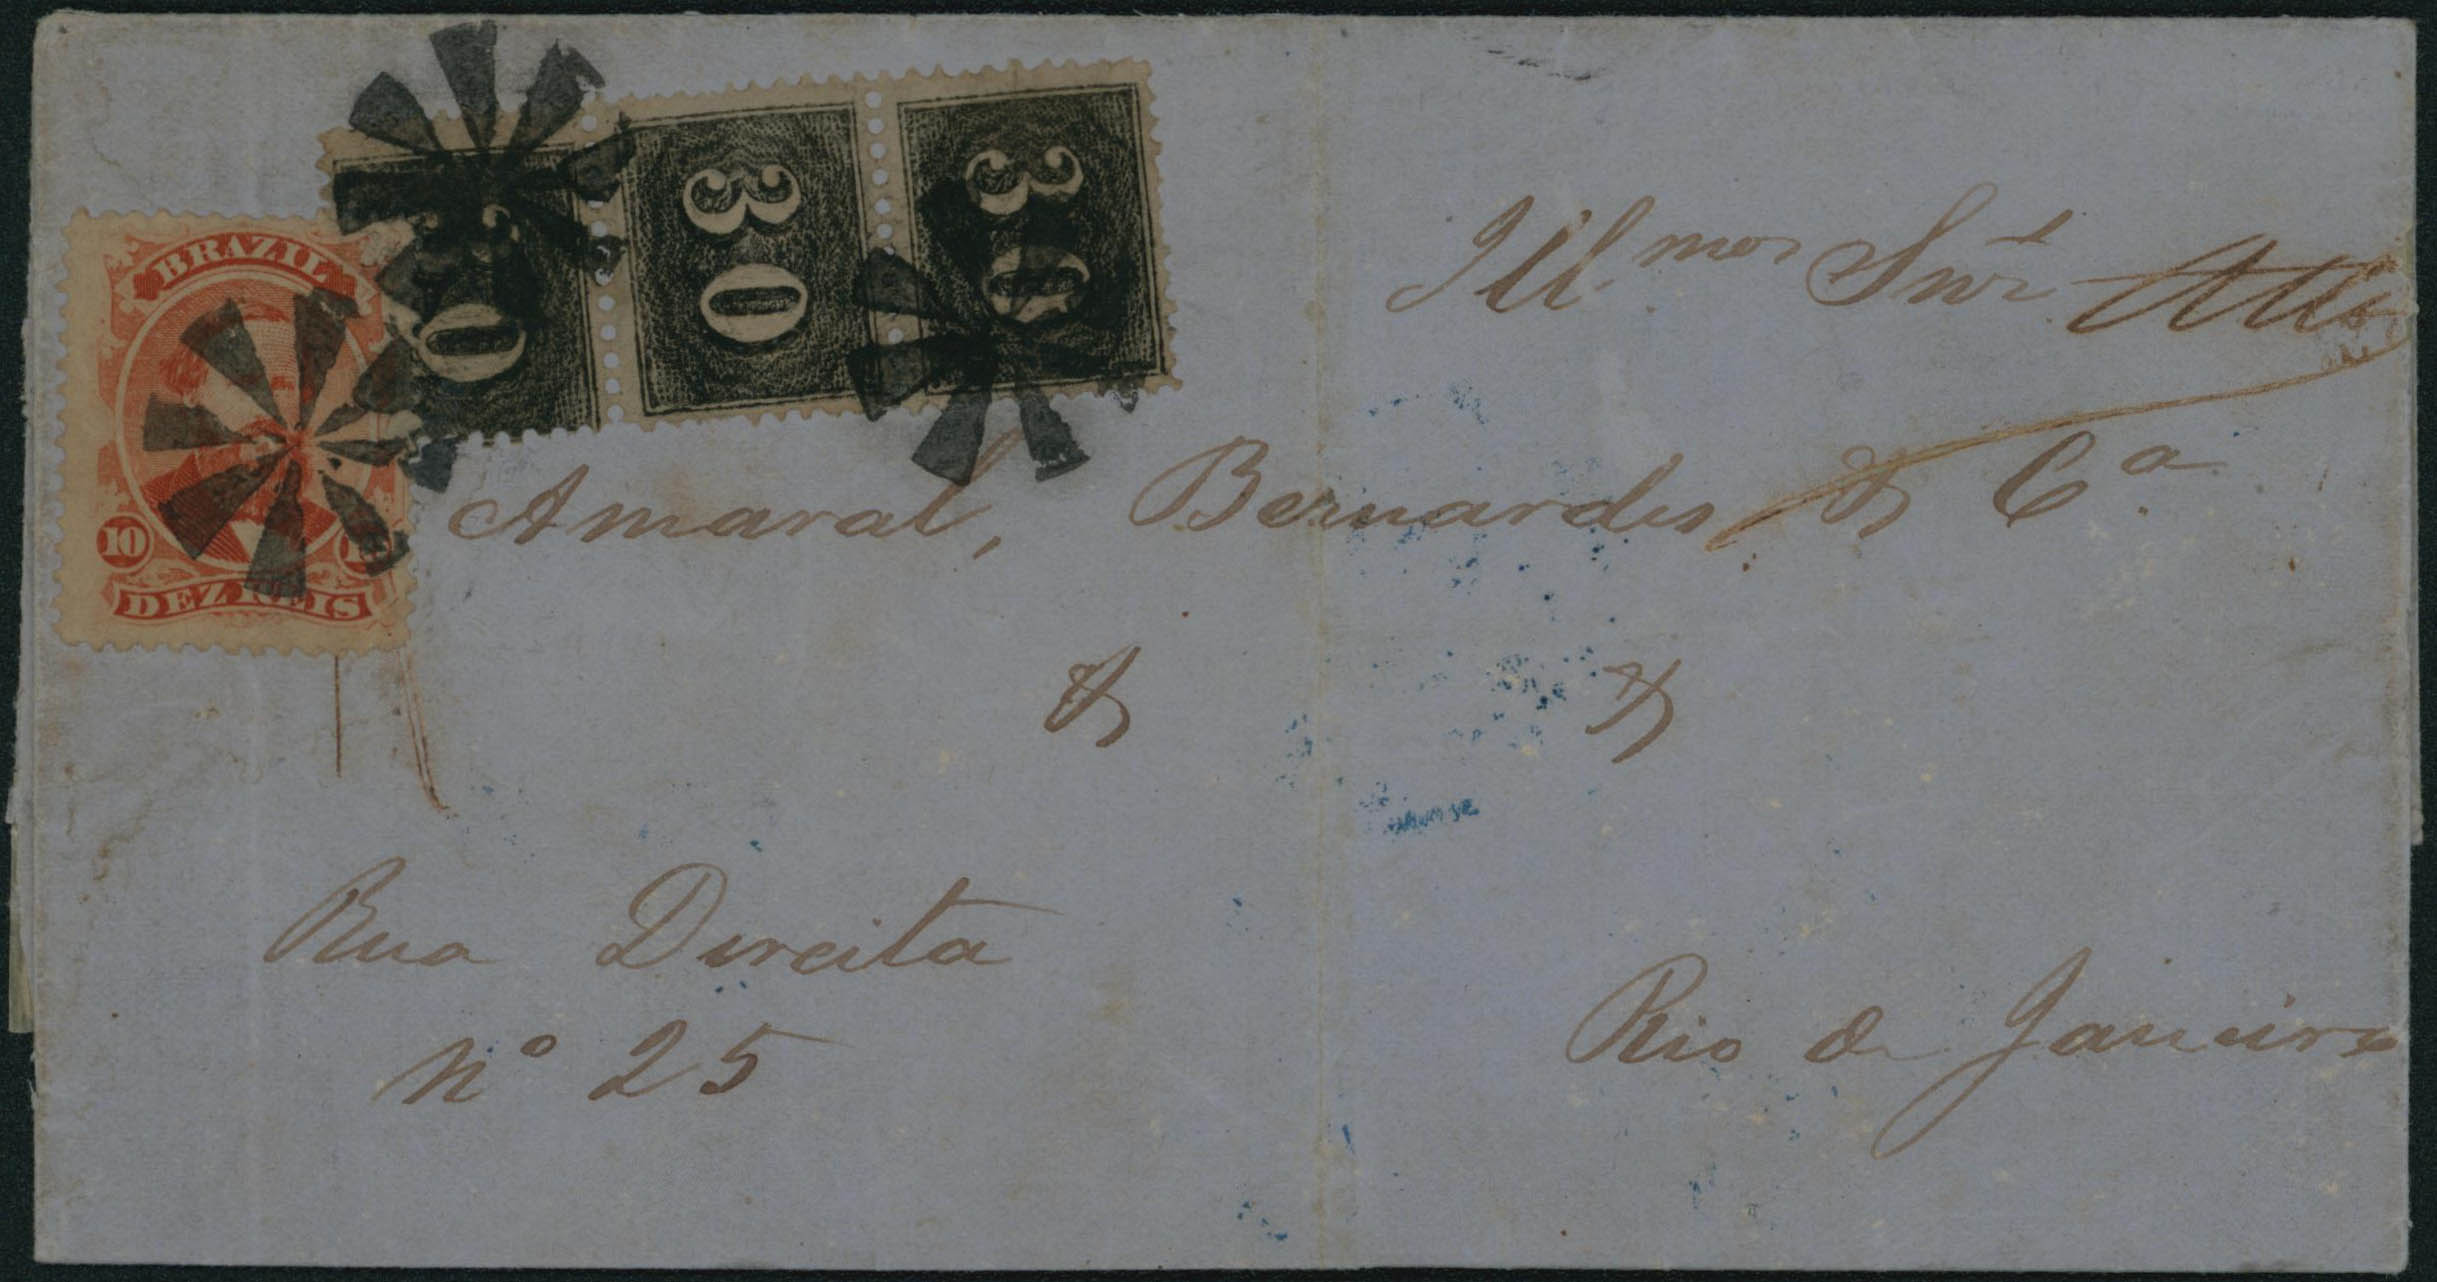 BRAZIL
10 10
DEZ REIS
30
30
30
Ill.mos Snr
Amaral, Bernardes & Ca.
& &
Rua Direita
no 25
Rio de Janeiro